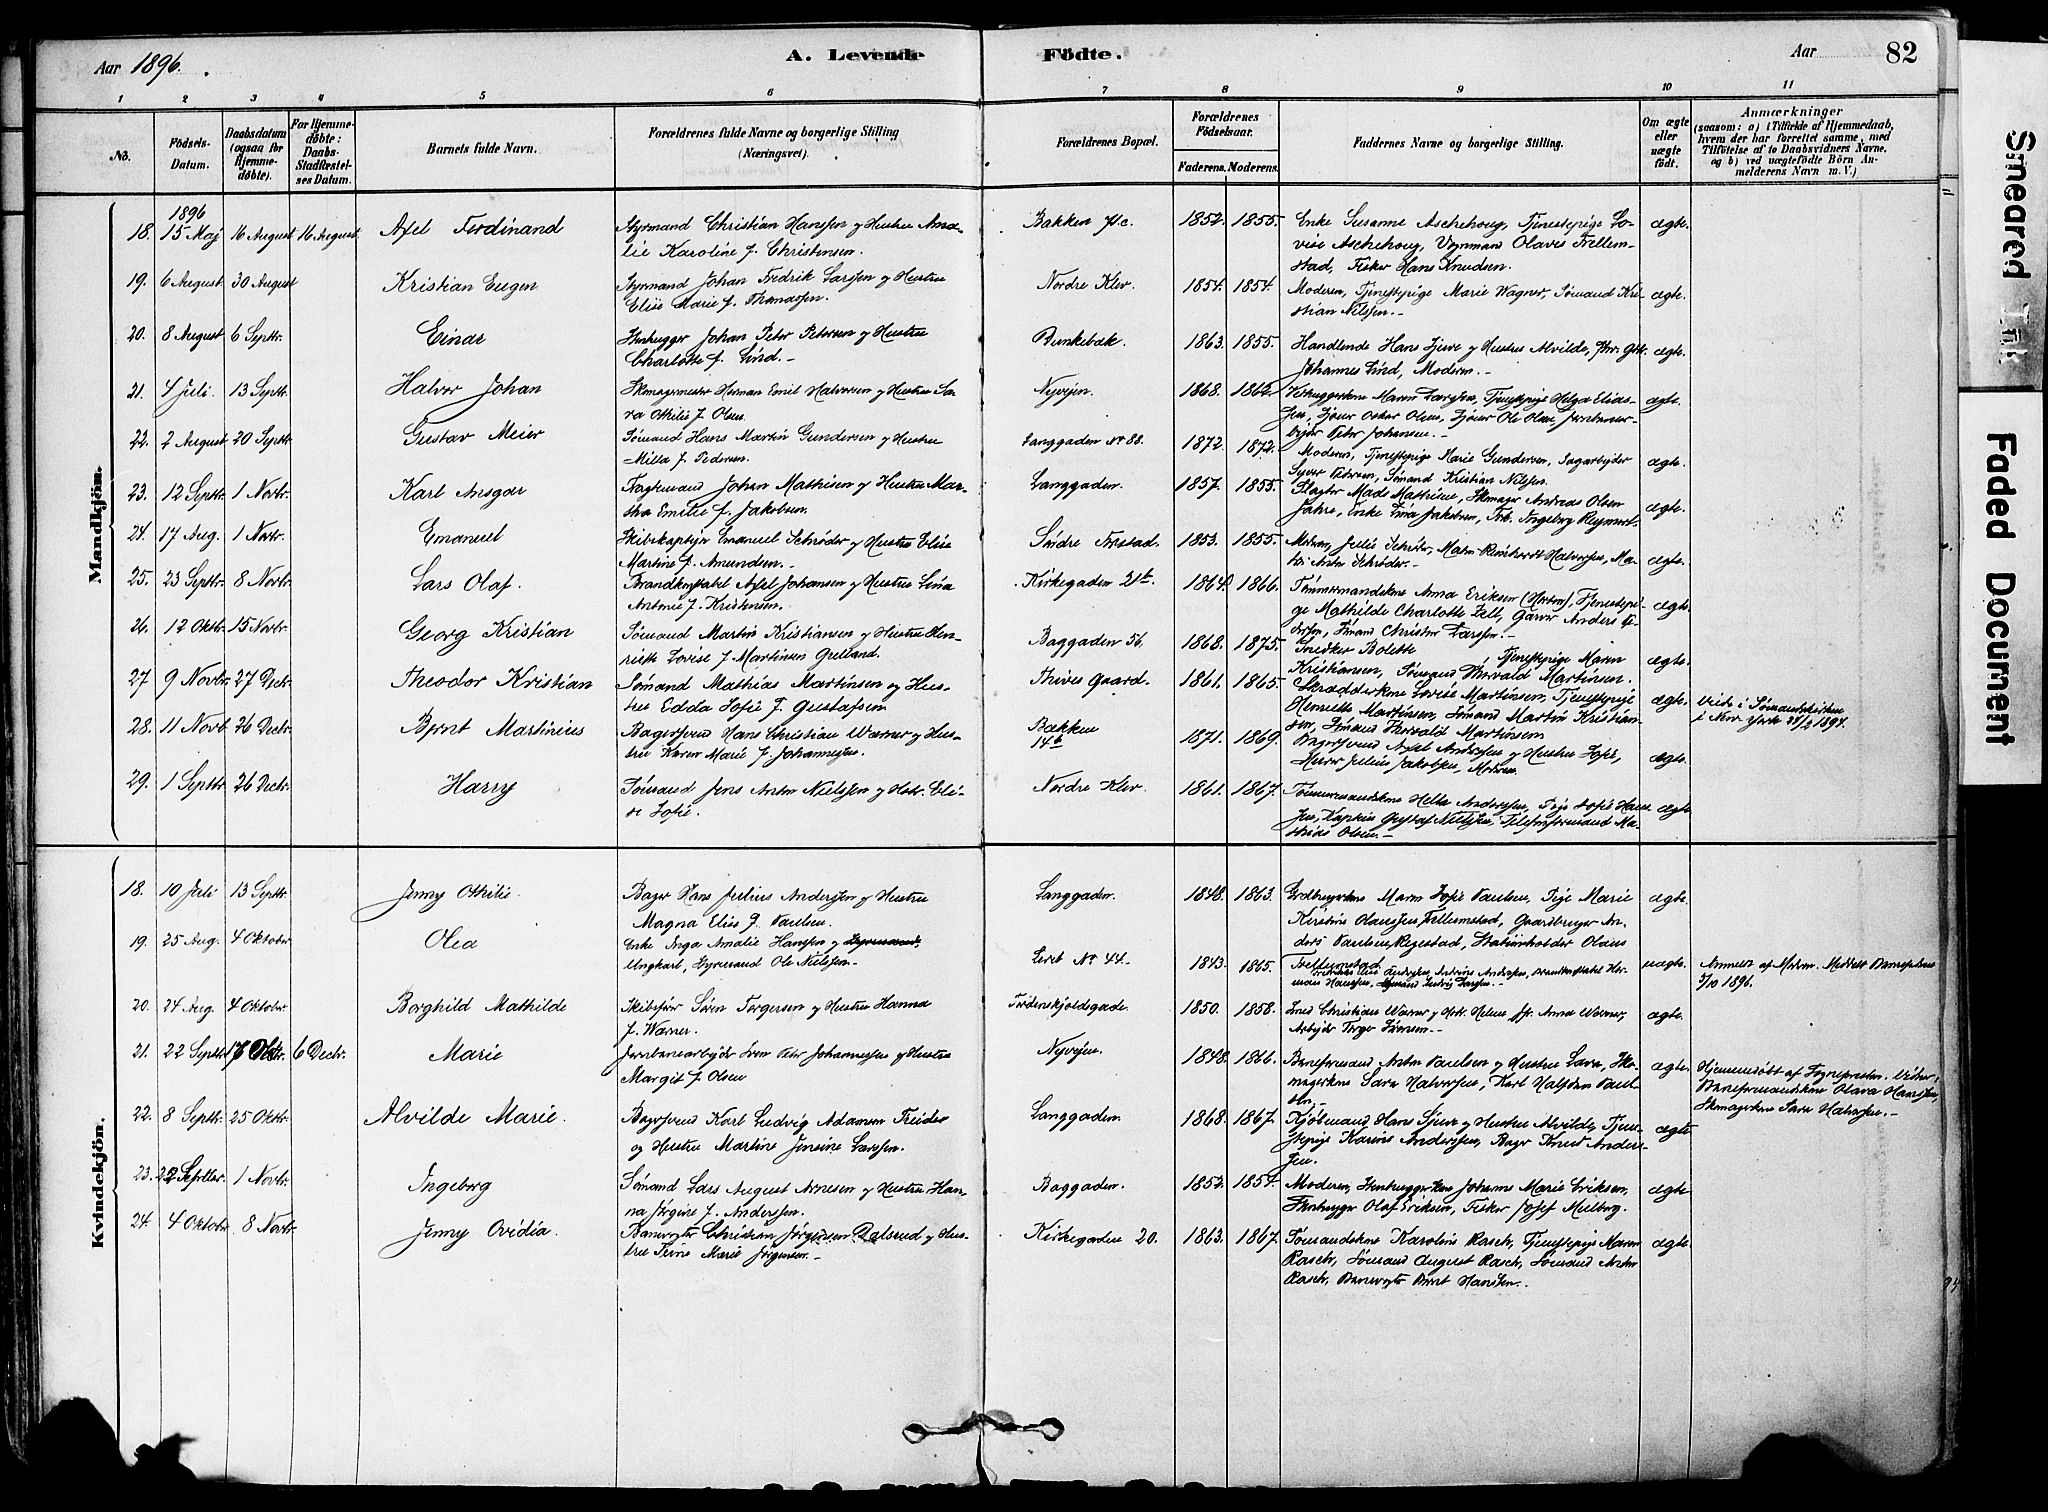 Aar 1896.
A. Levende Födte.
Aar
82
1 2 3 4 5 6 7 8 9 10 11
No.
Födsels-Datum.
Daabsdatum (ogsaa for Hjemmedöbte).
For Hjemmedöbte: Daabs-Stadfæstelses Datum.
Barnets fulde Navn.
Forældrenes fulde Navne og borgerlige Stilling (Næringsvei).
Forældrenes Bopæl.
Forældrenes Födselsaar.
Faderens. Moderens.
Faddernes Navne og borgerlige Stilling.
Om ægte eller uægte født.
Anmærkninger
(saasom: a) i Tilfælde af Hjemmedaab, hvem der har forrettet samme, med Tilföielse af to Daabsvidners Navne, og b) ved uægtefödte Börn Anmelderens Navn m. V.)
Mandkjön.
1896
18. 15 Maj 16 August 16 August Axel Ferdinand Styrmand Christian Hanssen og Hustru Amalie Karoline f. Christensen. Bakken 71c. 1852. 1855. Enke Susanne Aschehoug, Tjenestepige Lovise Aschehoug, Olaves Tellemstad, Fisker Hans Knudsen. ægte.
19. 6 August 30 August Kristian Eugen Styrmand Johan Fredrik Larssen og Hustru Elise Marie f. Thomassen. Nordre Klev 1854. 1854. Moderen, Tjenestepige Marie Wagner, Sømand Kristian Nilssen.- ægte.
20. 8 August 6 Septbr. Einar Stenhugger Johan Peter Petersen og Hustru Charlotte f. Lind.- Bunkebæk. 1863. 1855. Handlende Hans Sjuve og Hustru Alvilde, Johannes Lind, Moderen.- ægte.
21. 4 Juli. 13 Septbr. Halvor Johan Skomagermester Herman Emil Halvorsen og Hustru Sara Othilie f. Olsen. Nyvejen. 1868. 1862. Maren Larssen, Tjenestepige Helga Eliassen, Oskar Olsen, Ole Olsen, Peter Johansen.- ægte.
22. 2 August 20 Septbr. Gustav Meier Sømand Hans Martin Gundersen og Hustru Milla f. Pedersen. Langgaden No 88. 1872. 1872. Moderen, Tjenestepige Marie Gundersen, Sagarbejder Syver Pedersen, Sømand Kristian Nilsen. ægte.
23. 12 Septbr. 1 Novbr. Karl Ansgar Johan Mathisen og Hustru Martha Emilie f. Jakobsen. Langgaden. 1857. 1855. Slagter Mads Mathisen, Skomager Andreas Olsen Jahre, Enke Lina Jakobsen, Frk. Ingeborg Reymert. ægte.
24. 17 Aug. 1 Novbr. Emanuel Skibskaptejn Emanuel Schrøder og Hustru Elise Martine f. Amundsen.- Søndre 1853. 1855. Moderen, Julie Schrøder, Maren Halvorsen, Anton Schrøder.- ægte.
25. 23 Septbr. 8 Novbr. Lars Olaf. Brandkonstabel Axel Johansen og Hustru Lina Antonie f. Kristensen. Kirkegaden 21b. 1864. 1866. Tømmermandskone Anna Eriksen, Tjenestepige Mathilde Charlotte Zell, Garver Anders Pedersen, Sømand Christen Larssen.- ægte.
26. 12 Oktbr. 15 Novbr. Georg Kristian Sømand Martin Kristiansen og Hustru Henriette Lovise f. Martinsen Grelland. Baggaden 56. 1868. 1875. Snedker Bolette Tjenestepige Maren Kristiansen, Sømand Thorvald Martinsen. ægte.
27 9 Novbr. 27 Decbr. Theodor Kristian Sømand Mathias Martinsen og Hustru Edda Sofie f. Gustafsen. Thives Gaard. 1861. 1865. Skrædderkone Lovise Martinsen, Tjenestepige Henriette Martinsen, Sømand Martin Kristiansen, Sømand Thorvald Martinsen. ægte. Viede i Sømandskirken i New York 1894.
28. 11 Novb. 26 Decbr. Bernt Martinius Bagersvend Hans Christian Warner og Hustru Karen Marie f. Johannessen. Bakken 14b. 1871. 1869. Bagersvend Axel Andersen og Hustru Sofie, Murer Julius Jakobsen, Moderen. ægte.
29. 1 Septbr. 26 Decbr. Harry Sømand Jens Anton Nielssen og Hstr. Elise Sofie. Nordre Klev. 1861. 1867. Tømmermandskone Helle Anderssen, Pige Sofie Hanssen, Kaptein Gustaf Nielssen, Telefonformand Mathias Olsen.- ægte
Kvindekjön.
18. 10 Juli 13 Septbr. Jenny Othilie. Bager Hans Julius Anderssen og Hustru Magna Elise f. Paulsen. Langgaden. 1848. 1863. Maren Sofie Paulsen, Pige Marie Kirstine Olaussen Tellumstad, Gaardbruger Anders Paulsen Regestad, Stationholder Olaus Tellumstad. ægte.
19. 25 Aug. 4 Oktober Olea Enke Inga Amalie Hanssen og Styrmand, Ungkarl, Styrmand Ole Nielssen.- Leret No 44. 1843. 1865. uægte. Anmeldt af Moderen. Meddelt 5/10 1896.
20. 24 Aug. 4 Oktober. Borghild Mathilde Skibsfører Søren Torgersen og Hustru Hanna f. Warner. Tordenskjoldsgade. 1850. 1858. Christian Warner og Hstr. Helene, Fr. Anna Warner, Arbejder Terje Simonsen.- ægte.
21. 22 Septbr. 17 Oktbr. 6 Decbr. Marie Jernbanearbejder Sven Peter Johannessen og Hustru Margit f. Olsen Nyvejen. 1848. 1866. Baneformand Anton Paulsen og Hustru Sara, Skomagerkone Sara Halvorsen, Karl Halfdan Paulsen.- ægte. Hjemmedøbt af Sognepresten. Vidner: Baneformandskone Olava Hanssen, Skomagerkone Sara Halvorsen.-
22. 8 Septbr. 25 Oktbr. Alvilde Marie. Bagersvend Karl Ludvig Adamsen Treider og Hustru Martine Jensine Larssen. Langgaden. 1868. 1867. Kjøbmand Hans Sjuve og Hustru Alvilde, Tjenestepige Karine Anderssen, Bager Knud Anderssen. ægte
23. 22 Septbr. 1 Novbr. Ingeborg Sømand Lars August Arnesen og Hustru Hanna Jørgine f. Anderssen. Baggaden. 1852. 1854. Moderen, Stenhuggerkone Johanne Marie Eriksen, Stenhugger Olaf Eriksen, Fisker Josef Mulberg. ægte
24. 4 Oktobr. 8 Novbr. Jenny Ovidia. Banevogter Christian Jørgensen Dalsrud og Hustru Trine Marie Jørgensen.- Kirkegaden 20. 1863. 1867. Sømandskone Karoline Rasch, Tjenestepige Maren Rasch, Sømand August Rasch, Sømand Anton Rasch, Banevogter Bernt Hanssen. ægte.
Smeared Ink
Faded Document